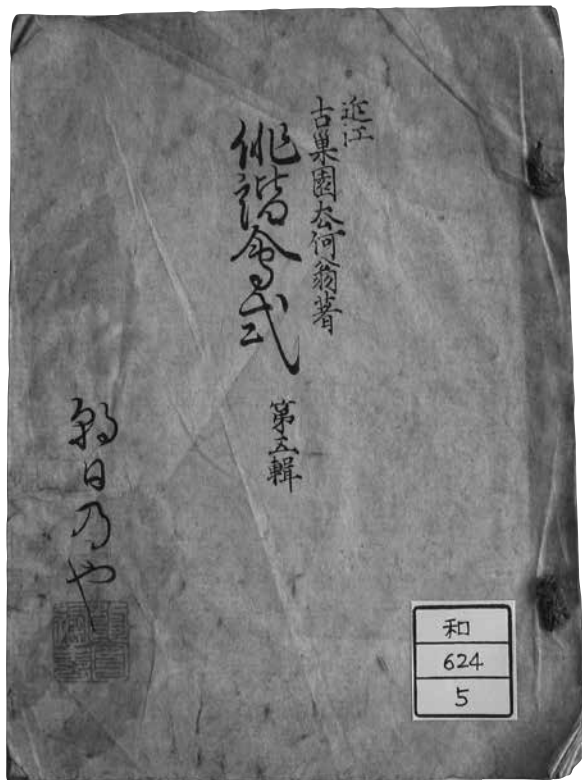 近江
古巣園太何翁著
俳諧會式
第五輯
朝日乃や
和
624
5